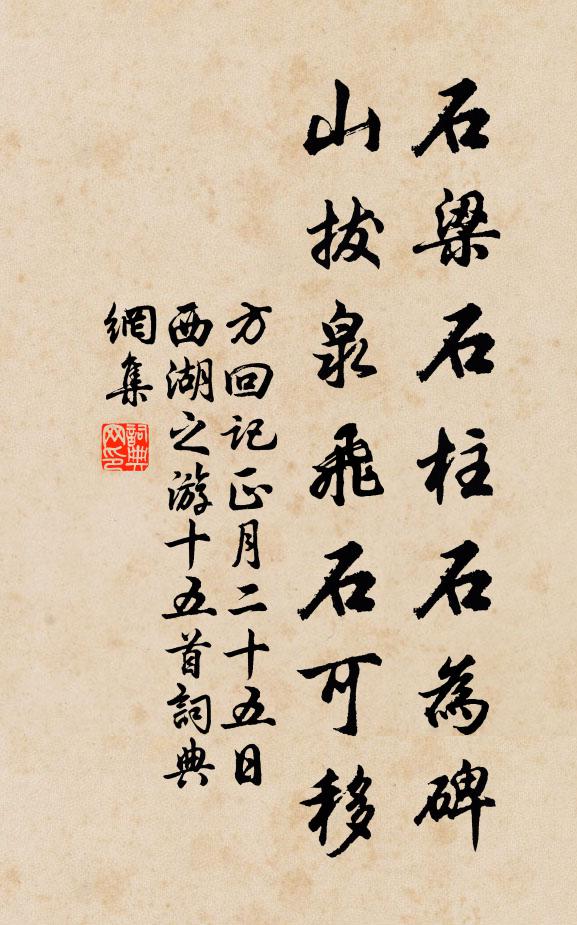 石梁石柱石為碑
山拔泉飛石可移
方回記正月二十五日
西湖之游十五首詞典
網集
詞典
网印